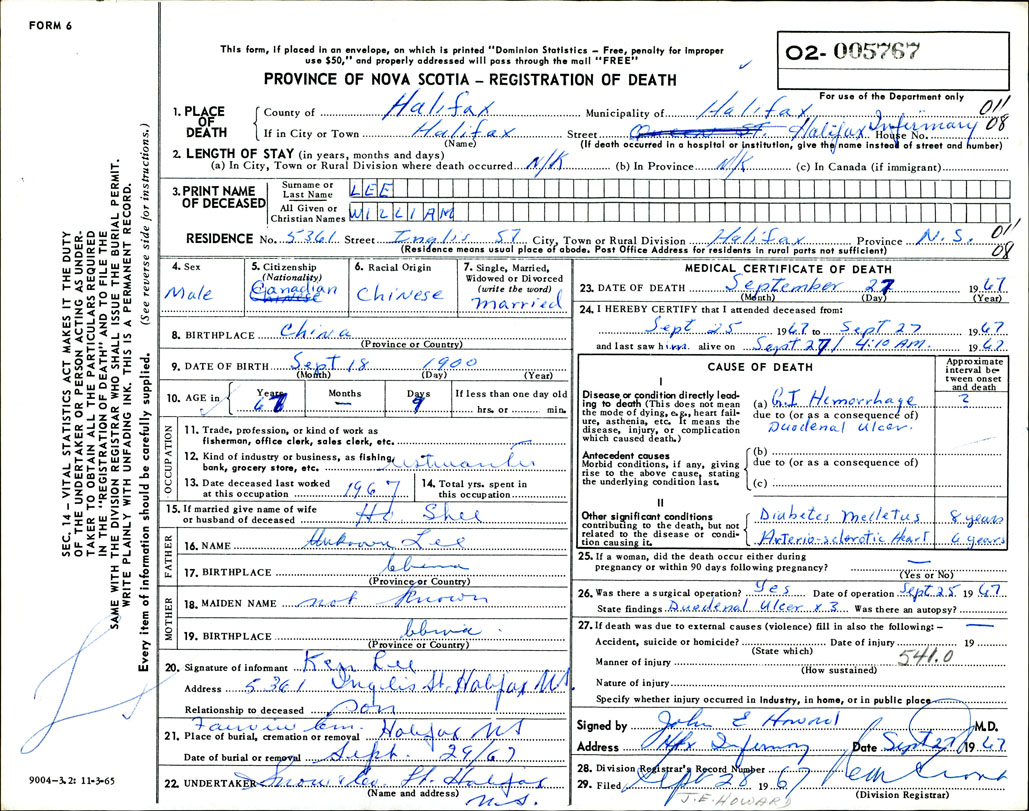 FORM 6
This form, if placed in an envelope, on which is printed "Dominion Statistics – Free, penalty for improper
use $50," and properly addressed will pass through the mail "FREE"
PROVINCE OF NOVA SCOTIA – REGISTRATION OF DEATH
02- 005767
For use of the Department only
011
08
1. PLACE OF DEATH
County of Halifax Municipality of Halifax
If in City or Town Halifax Street Halifax Infirmary House No.
(Name) (If death occurred in a hospital or institution, give the name instead of street and number)
2. LENGTH OF STAY (in years, months and days)
(a) In City, Town or Rural Division where death occurred N/K (b) In Province N/K (c) In Canada (if immigrant)
3. PRINT NAME OF DECEASED
Surname or Last Name LEE
All Given or Christian Names WILLIAM
RESIDENCE No. 5361 Street Inglis ST City, Town or Rural Division Halifax Province N.S.
011
08
(Residence means usual place of abode. Post Office Address for residents in rural parts not sufficient)
4. Sex
Male
5. Citizenship
(Nationality)
Canadian
Chinese
6. Racial Origin
Chinese
7. Single, Married,
Widowed or Divorced
(write the word)
Married
8. BIRTHPLACE China
(Province or Country)
9. DATE OF BIRTH Sept 18 1900
(Month) (Day) (Year)
10. AGE in
Years
Months –
Days 9
If less than one day old
hrs. or min.
OCCUPATION
11. Trade, profession, or kind of work as
fisherman, office clerk, sales clerk, etc.
12. Kind of industry or business, as fishing,
bank, grocery store, etc.
13. Date deceased last worked
at this occupation 1967
14. Total yrs. spent in
this occupation
15. If married give name of wife
or husband of deceased Ho Shee
FATHER
16. NAME Unknown Lee
17. BIRTHPLACE China
(Province or Country)
MOTHER
18. MAIDEN NAME not known
19. BIRTHPLACE China
(Province or Country)
20. Signature of informant Ken Lee
Address 5361 Inglis St. Halifax NS.
Relationship to deceased Son
Fairview Cem. Halifax NS
21. Place of burial, cremation or removal
Date of burial or removal Sept. 29/67
22. UNDERTAKER Snow & Co. Ltd. Halifax
(Name and address) N.S.
MEDICAL CERTIFICATE OF DEATH
23. DATE OF DEATH September 27 1967
(Month) (Day) (Year)
24. I HEREBY CERTIFY that I attended deceased from:
Sept 25 1967 to Sept 27 1967
and last saw him alive on Sept 27/ 4:10 AM. 1967
CAUSE OF DEATH
Approximate
interval be-
tween onset
and death
I
Disease or condition directly lead-
ing to death (This does not mean
the mode of dying, e.g., heart fail-
ure, asthenia, etc. It means the
disease, injury, or complication
which caused death.)
(a) G.I Hemorrhage 2
due to (or as a consequence of)
Duodenal Ulcer.
Antecedent causes
Morbid conditions, if any, giving
rise to the above cause, stating
the underlying condition last.
(b)
due to (or as a consequence of)
(c)
II
Other significant conditions
contributing to the death, but not
related to the disease or condi-
tion causing it.
Diabetes Melletus 8 years
Arterio-sclerotic Heart 6 years
25. If a woman, did the death occur either during
pregnancy or within 90 days following pregnancy? –
(Yes or No)
26. Was there a surgical operation? Yes Date of operation Sept 25 1967.
State findings Duodenal Ulcer x 3 Was there an autopsy?
27. If death was due to external causes (violence) fill in also the following: – —
Accident, suicide or homicide? Date of injury 19
(State which)
541.0
Manner of injury
(How sustained)
Nature of injury
Specify whether injury occurred in Industry, in home, or in public place
Signed by John E Howard M.D.
Address Hfx Infirmary Date Sept 27 1967
28. Division Registrar's Record Number
29. Filed Sept 28 1967
(Division Registrar)
J.E. HOWARD
SEC. 14 – VITAL STATISTICS ACT MAKES IT THE DUTY
OF THE UNDERTAKER OR PERSON ACTING AS UNDER-
TAKER TO OBTAIN ALL THE PARTICULARS REQUIRED
IN THE "REGISTRATION OF DEATH" AND TO FILE THE
SAME WITH THE DIVISION REGISTRAR WHO SHALL ISSUE THE BURIAL PERMIT.
WRITE PLAINLY WITH UNFADING INK. THIS IS A PERMANENT RECORD.
Every item of information should be carefully supplied. (See reverse side for instructions.)
9004-3.2: 11-3-65